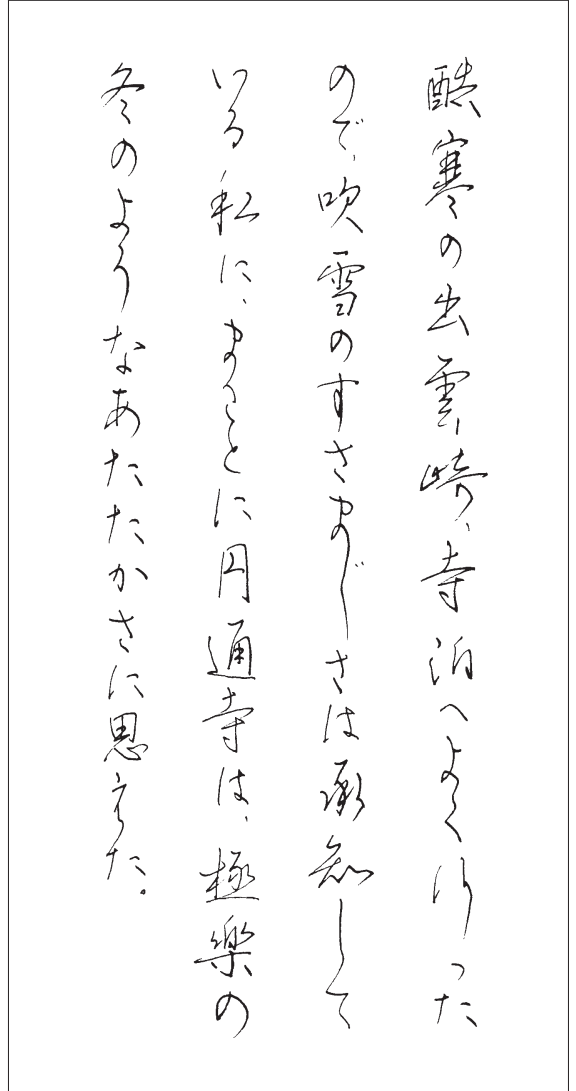 酷寒の出雲崎、寺泊へよく行った
ので、吹雪のすさまじさは承知して
いる私に、まことに円通寺は、極楽の
冬のようなあたたかさに思えた。